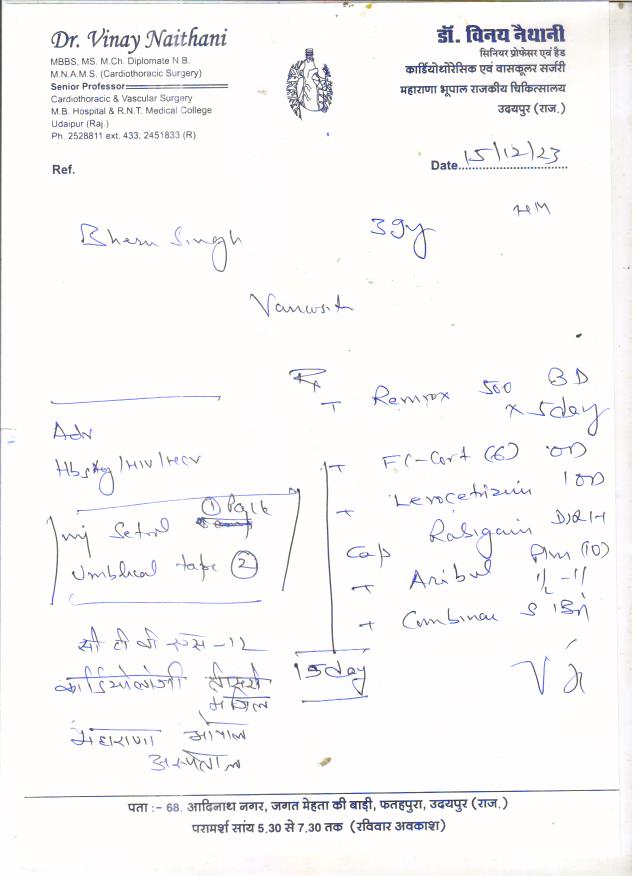 Dr. Vinay Naithani
MBBS, MS. M.Ch. Diplomate N.B.
M.N.A.M.S. (Cardiothoracic Surgery)
Senior Professor
Cardiothoracic & Vascular Surgery
M.B. Hospital & R.N.T. Medical College
Udaipur (Raj.)
Ph. 2528811 ext. 433, 2451833 (R)
डॉ. विनय नैथानी
सिनियर प्रोफेसर एवं हैड
कार्डियोथोरेसिक एवं वासकूलर सर्जरी
महाराणा भूपाल राजकीय चिकित्सालय
उदयपुर (राज.)
Ref.
Date 15/12/23
Bheru Singh 39y
Rx
T Remrox 500 BD
x 5day
Adv
HbsAg/HIV/HCV
T (6) OD
T Levocetrizin 1 OD
Cap
T
T
inj Setrol ①
Umblical tape ②
15day
सी टी वी एस -12
कार्डियोलोजी तीसरी
मंजिल
महाराणा भोपाल
अस्पताल
पता :- 68, आदिनाथ नगर, जगत मेहता की बाड़ी, फतहपुरा, उदयपुर (राज.)
परामर्श सांय 5.30 से 7.30 तक (रविवार अवकाश)